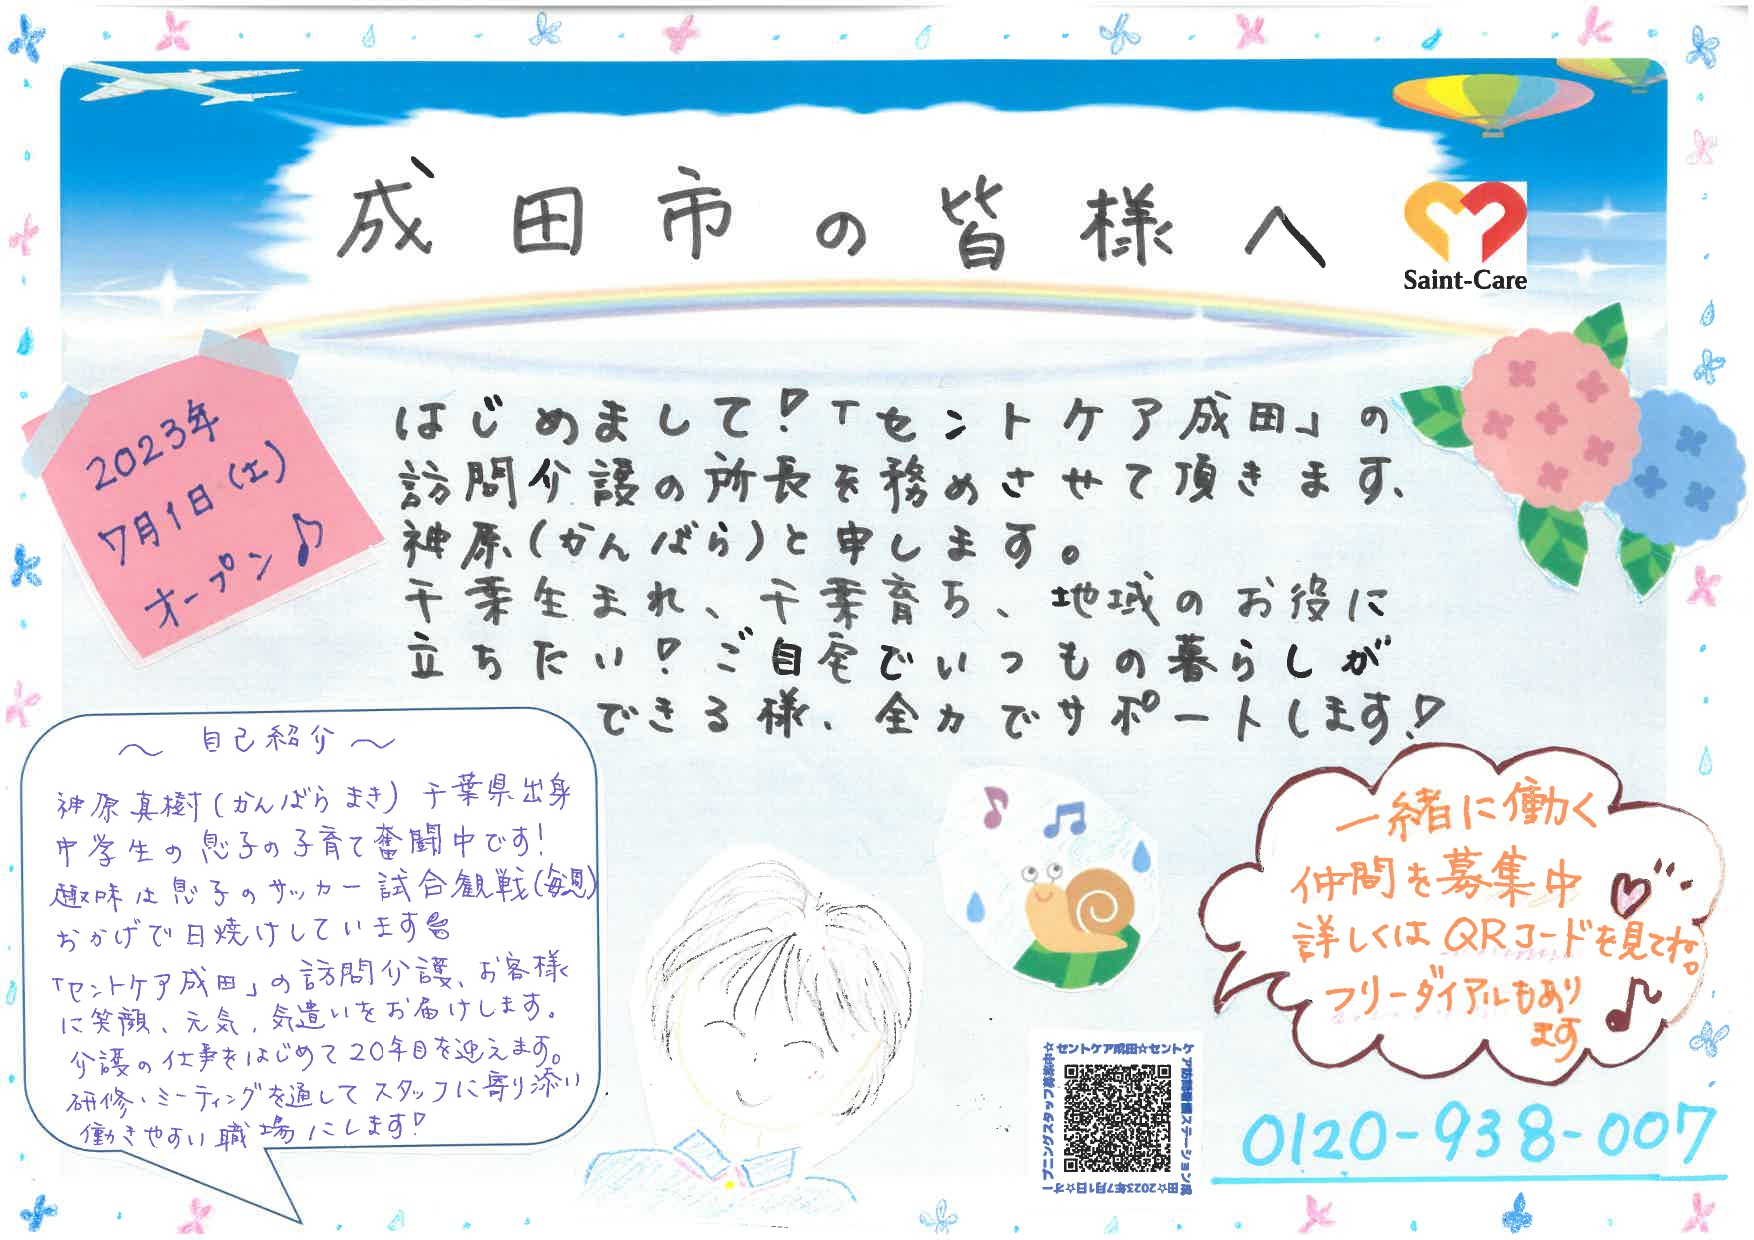 成田市の皆様へ
Saint-Care
2023年
7月1日(土)
オープン♪
はじめまして!「セントケア成田」の
訪問介護の所長を務めさせて頂きます、
神原(かんばら)と申します。
千葉生まれ、千葉育ち、地域のお役に
立ちたい!ご自宅でいつもの暮らしが
できる様、全力でサポートします!
~ 自己紹介 ~
神原真樹(かんばら まき) 千葉県出身
中学生の息子の子育て奮闘中です!
趣味は息子のサッカー試合観戦(毎週)
おかげで日焼けしています
「セントケア成田」の訪問介護、お客様
に笑顔、元気、気遣いをお届けします。
介護の仕事をはじめて20年目を迎えます。
研修・ミーティングを通してスタッフに寄り添い
働きやすい職場にします!
一緒に働く
仲間を募集中
詳しくはQRコードを見てね。
フリーダイアルもあり
ます
☆セントケア成田☆セントケ
ア訪問看護ステーション成
田☆2023年7月1日☆オー
プニングスタッフ募集中
0120-938-007